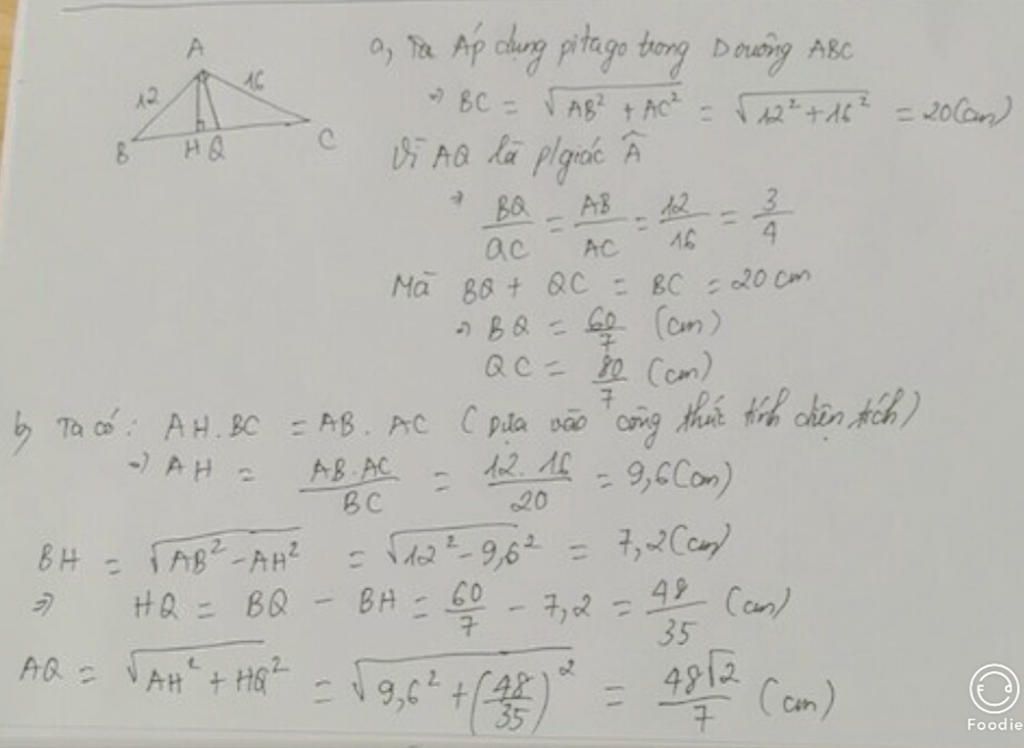 A
12
16
B
H
Q
C
a, Ta Áp dụng pitago trong Δ vuông ABC
⇒ BC = √(AB² + AC²) = √(12² + 16²) = 20(cm)
Vì AQ là p/giác Â
⇒ BQ/QC = AB/AC = 12/16 = 3/4
Mà BQ + QC = BC = 20 cm
⇒ BQ = 60/7 (cm)
QC = 80/7 (cm)
b, Ta có: AH.BC = AB. AC (Dựa vào công thức tính diện tích)
⇒ AH = AB.AC/BC = 12.16/20 = 9,6(cm)
BH = √(AB² - AH²) = √(12² - 9,6²) = 7,2(cm)
⇒ HQ = BQ - BH = 60/7 - 7,2 = 48/35 (cm)
AQ = √(AH² + HQ²) = √(9,6² + (48/35)²) = 48√2/7 (cm)
Foodie